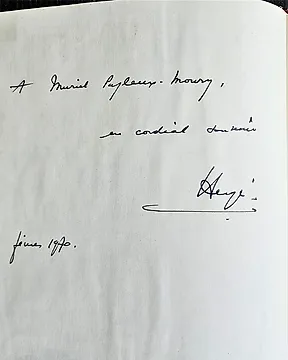 A Muriel Payleux-Moury,
en cordial souvenir
Hergé
février 1970.